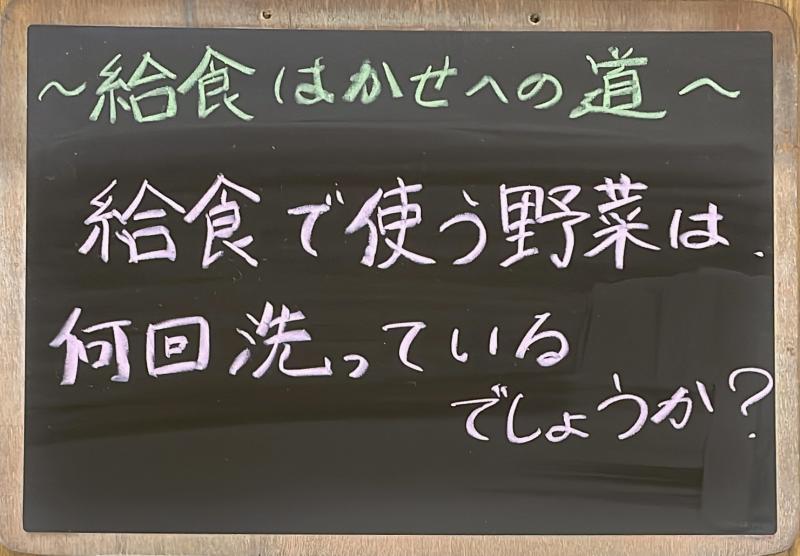 ～給食はかせへの道～
給食で使う野菜は、
何回洗っている
でしょうか？